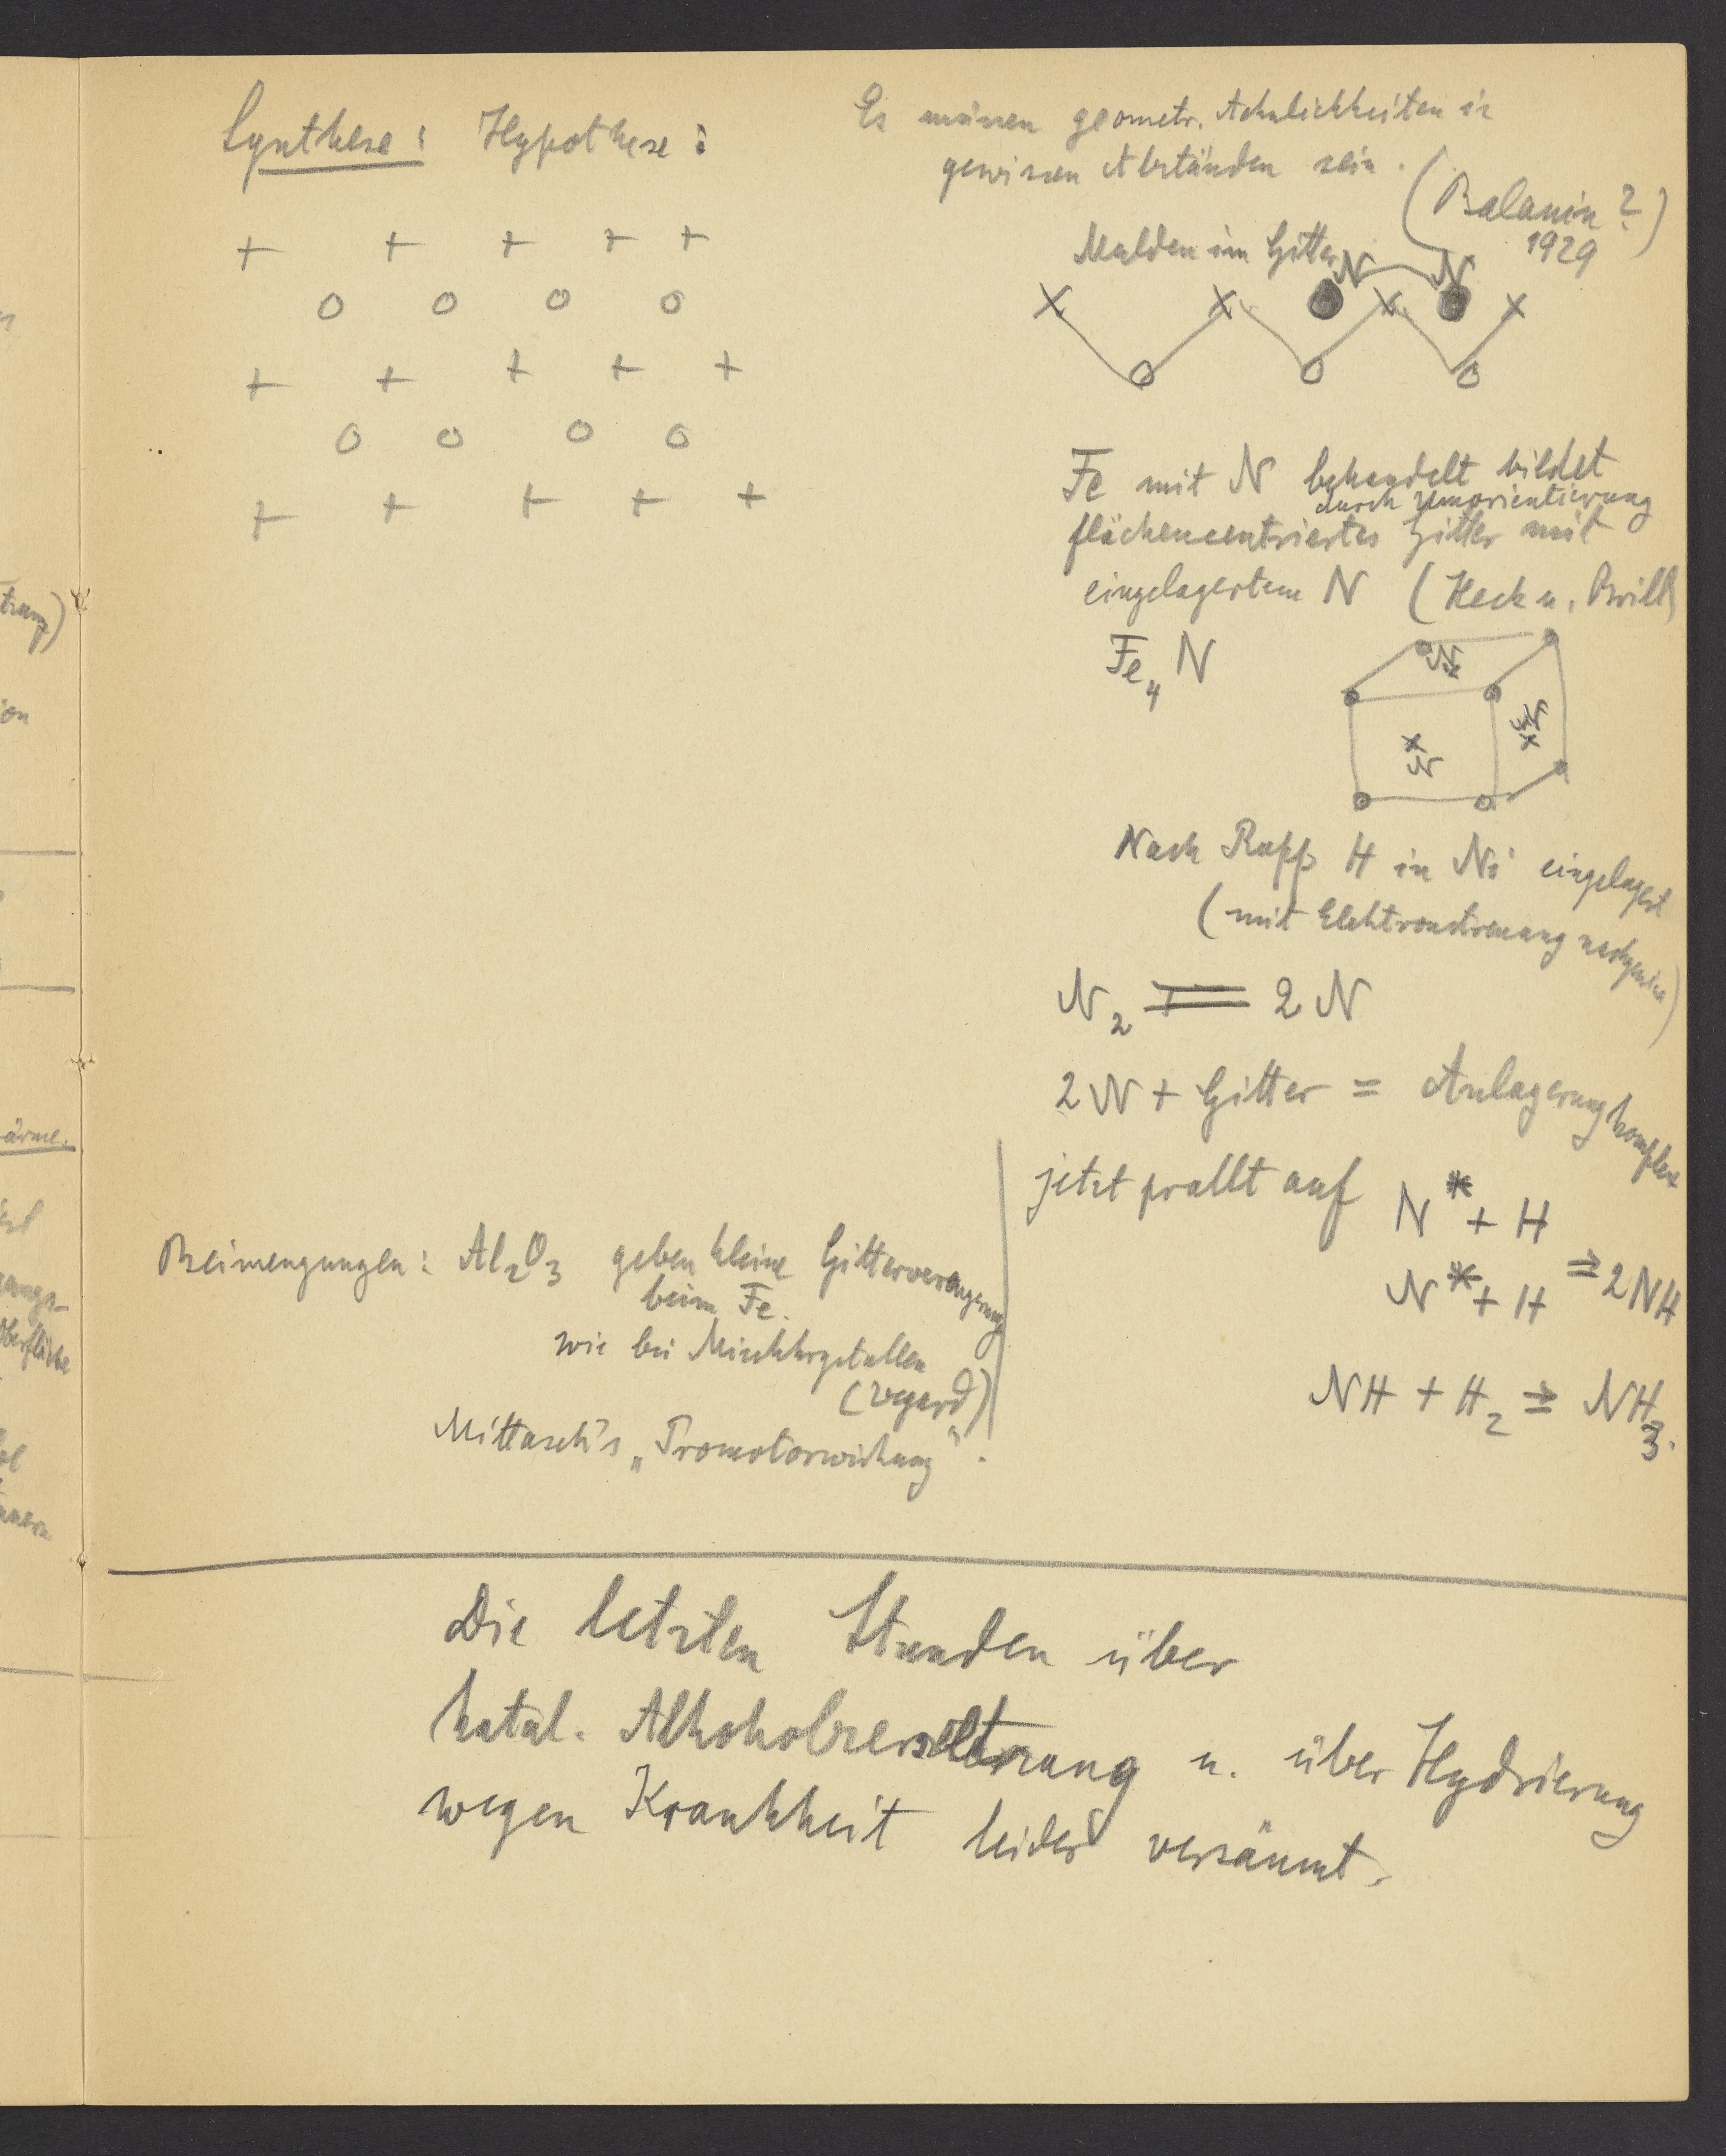 Synthese: Hypothese:
Es müssen geometr. Ähnlichkeiten in
gewissen Abständen sein.
(Balanin?)
1929
Mulden im Gitter
N N
+ + + + +
o o o o
+ + + + +
o o o o
+ + + + +
x x x x
o o o
Fe mit N behandelt bildet
durch Umorientierung
flächencentriertes Gitter mit
eingelagertem N (Heck u. Brill)
Fe4 N
N x
x N
N x
Nach Rupp H in Ni eingelagert
(mit Elektronstreuung
N2 = 2 N
2 N + Gitter = Anlagerungkomplex
jetzt prallt auf N* + H
N* + H ⇒ 2 NH
NH + H2 ⇒ NH3.
Beimengungen: Al2O3 geben kleine Gitterverengerung
beim Fe.
wie bei Mischkrystallen
(Vegard)
Mittasch's „Promotorwirkung".
Die letzten Stunden über
katal. Alkoholzersetzung u. über Hydrierung
wegen Krankheit leider versäumt.
trung)
ion
ärme.
gangs-
Oberfläche